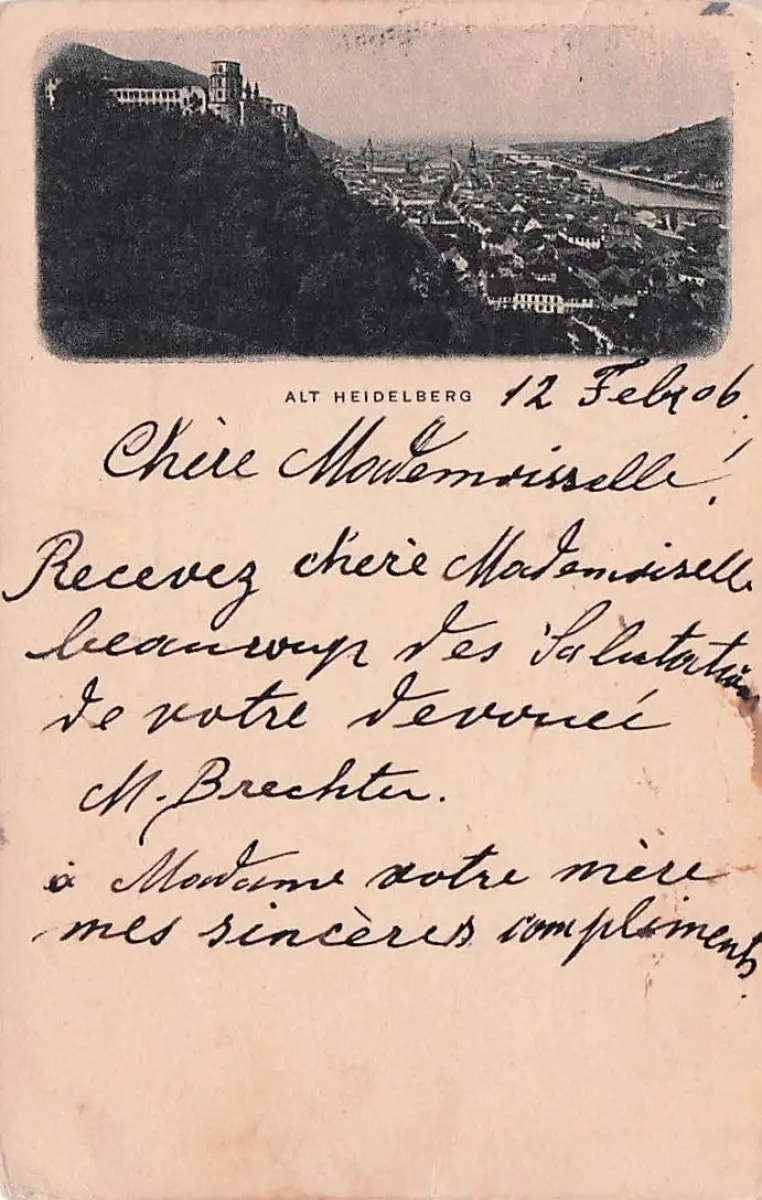 ALT HEIDELBERG 12 Febr 06.
Chère Mademoisselle!
Recevez chère Mademoiselle
beaucoup des Salutation
de votre devouéi
M. Brechter.
à Madame votre mère
mes sincères compliments